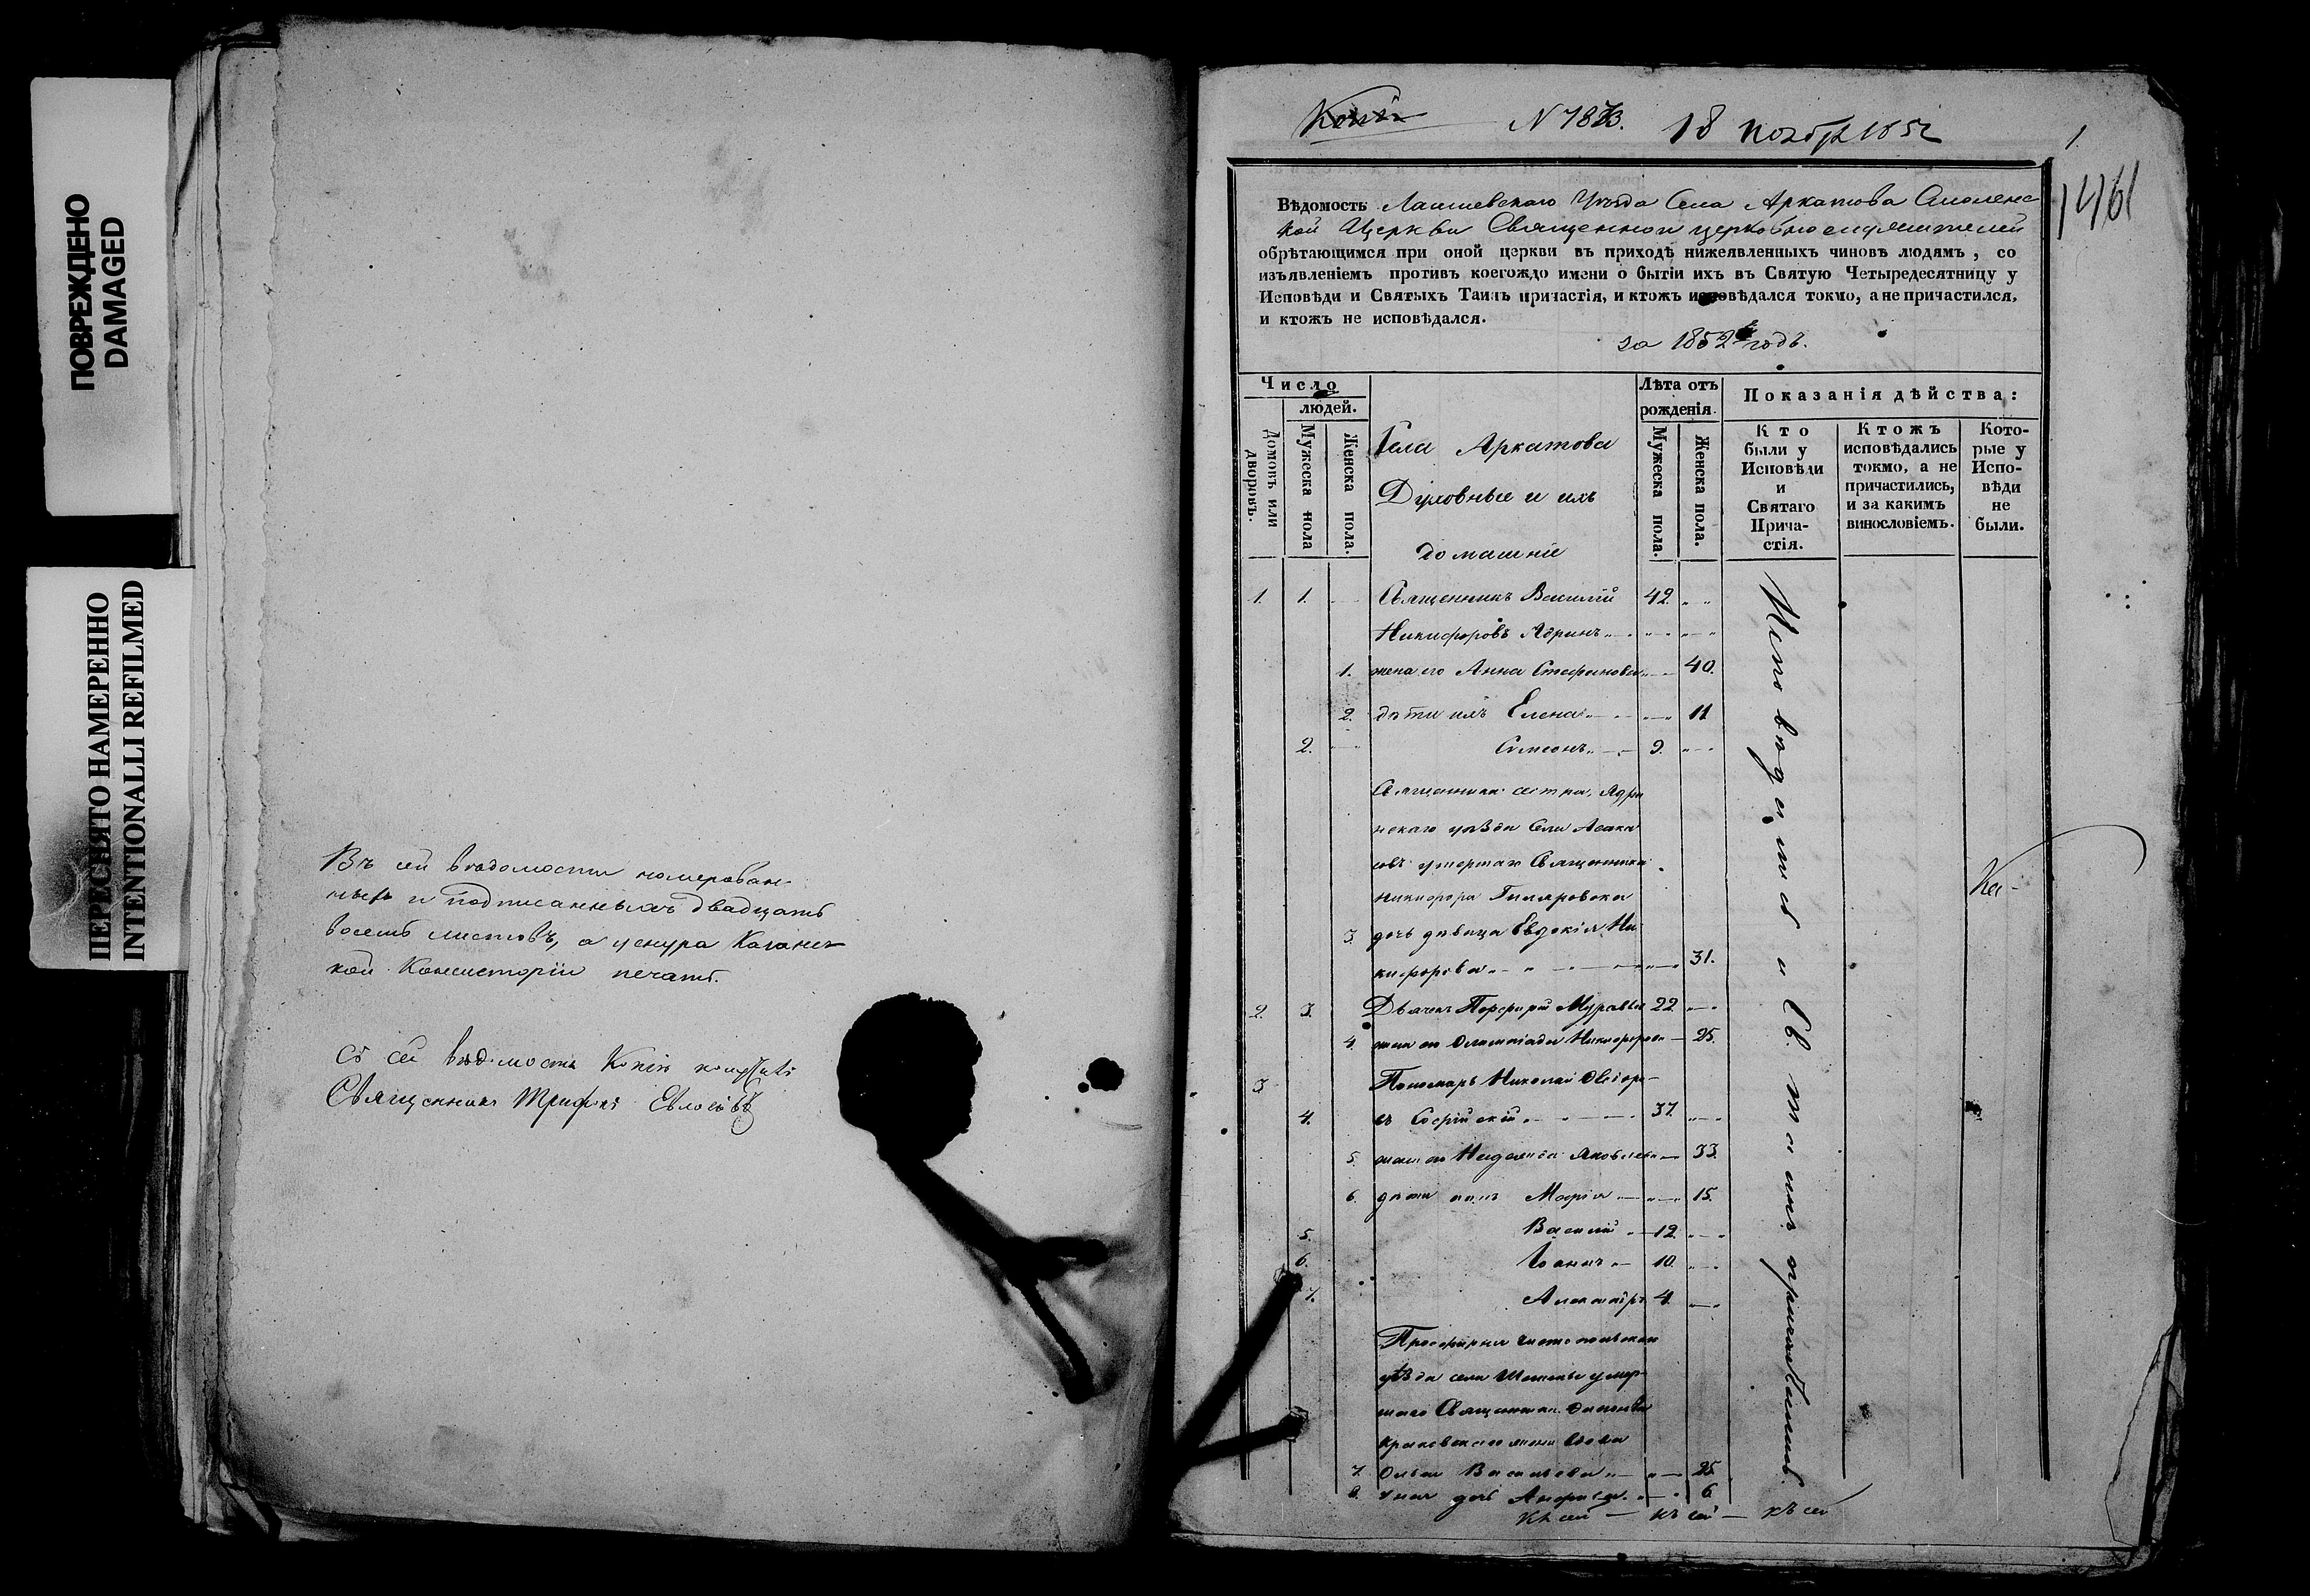 ПОВРЕЖДЕНО
DAMAGED
ПЕРЕСНЯТО НАМЕРЕННО
INTENTIONALLI REFILMED
Въ сей вѣдомости номерован-
ныхъ и подписанныхъ двадцать
восемь листовъ, а у снура Казанс-
кой Консисторіи печать.
Съ сей вѣдомости Копію
Священникъ Трифонъ
Копія N 18 Ноябр 1852
1.
1461
Вѣдомость Лаишевскаго Уѣзда Села Аркатова Смоленс
кой Церкви Священно и церковнослужителей
обрѣтающимся при оной церкви въ приходѣ нижеявленныхъ чиновъ людямъ, со
изъявленіемъ противъ коегождо имени о бытіи ихъ въ Святую Четыредесятницу у
Исповѣди и Святыхъ Таинъ причастія, и ктожъ исповѣдался токмо, а не причастился,
и ктожъ не исповѣдался.
за 1852 годъ.
Число
людей.
Домовъ или дворовъ.
Мужеска пола
Женска пола.
Села Аркатова
Духовные и ихъ
домашніе
Лѣта отъ
рожденія.
Мужеска пола.
Женска пола.
Показанія дѣйства:
Кто
были у
Исповѣди
и
Святаго
Прича-
стія.
Ктожъ
исповѣдались
токмо, а не
причастились,
и за какимъ
винословіемъ.
Кото-
рые у
Испо-
вѣди
не
были.
1. 1. Священникъ Василій 42.
Никифоровъ Ядринъ
1. жена его Анна Стефанова 40.
2. дѣти ихъ Елена 11
2. Симеонъ 9.
Священника сестра, Ядри
нскаго уѣзда Села Асака
совъ умершаго Священника
Никифора
3. дочь дѣвица Евдокія Ни
кифорова 31.
2. 3. Дьячекъ Порфирій 22
4. жена его Олимпіада Никифорова 25.
3 Пономарь Николай Ѳеодоро
въ Софійскій
4. 37.
5. жена его Надежда Яковлева 33.
6. дѣти ихъ Марія 15.
5. Василій 12
6. Іоаннъ 10.
7. Александръ 4.
Просфирня Чистопольскаго
уѣзда села умер-
шаго Священника
жена вдова
7. Ольга Васильева 25.
8. у нея дочь 6
Исповѣдались и Св. таинъ причастились.
Къ сей — къ сей — къ сей
Ка-